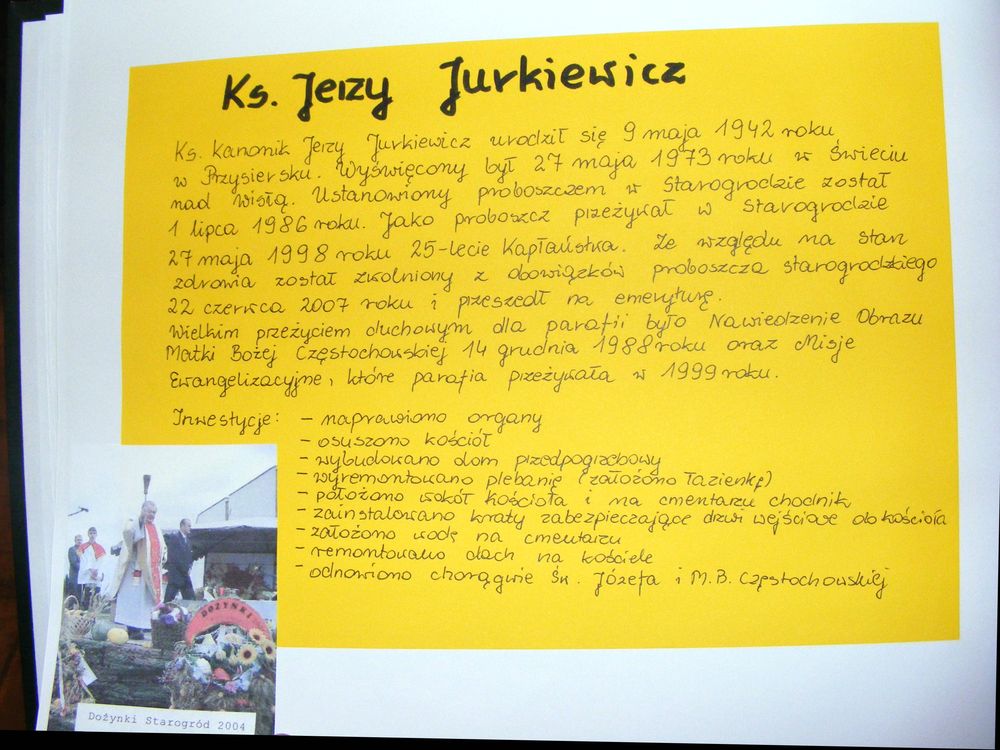 Ks. Jerzy Jurkiewicz
Ks. Kanonik Jerzy Jurkiewicz urodził się 9 maja 1942 roku
w Przysiersku. Wyświęcony był 27 maja 1973 roku w Świeciu
nad Wisłą. Ustanowiony proboszczem w Starogrodzie został
1 lipca 1986 roku. Jako proboszcz przeżywał w Starogrodzie
27 maja 1998 roku 25-lecie Kapłaństwa. Ze względu na stan
zdrowia został zwolniony z obowiązków proboszcza starogrodzkiego
22 czerwca 2007 roku i przeszedł na emeryturę.
Wielkim przeżyciem duchowym dla parafii było Nawiedzenie Obrazu
Matki Bożej Częstochowskiej 14 grudnia 1988 roku oraz Misje
Ewangelizacyjne, które parafia przeżywała w 1999 roku.
Inwestycje: - naprawiono organy
- osuszono kościół
- wybudowano dom przedpogrzebowy
- wyremontowano plebanię (założono łazienkę)
- położono wokół kościoła i na cmentarzu chodnik
- zainstalowano kraty zabezpieczające drzwi wejściowe do kościoła
- założono wodę na cmentarzu
- remontowano dach na kościele
- odnowiono chorągwie Św. Józefa i M.B. Częstochowskiej
DOŻYNKI
Dożynki Starogród 2004